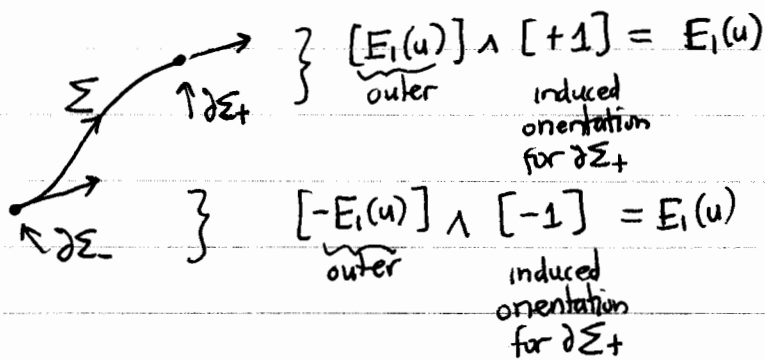 } [E₁(u)] ∧ [+1] = E₁(u)
Σ
↑∂Σ+
outer
induced
orientation
for ∂Σ+
↖∂Σ-
} [-E₁(u)] ∧ [-1] = E₁(u)
outer
induced
orientation
for ∂Σ+